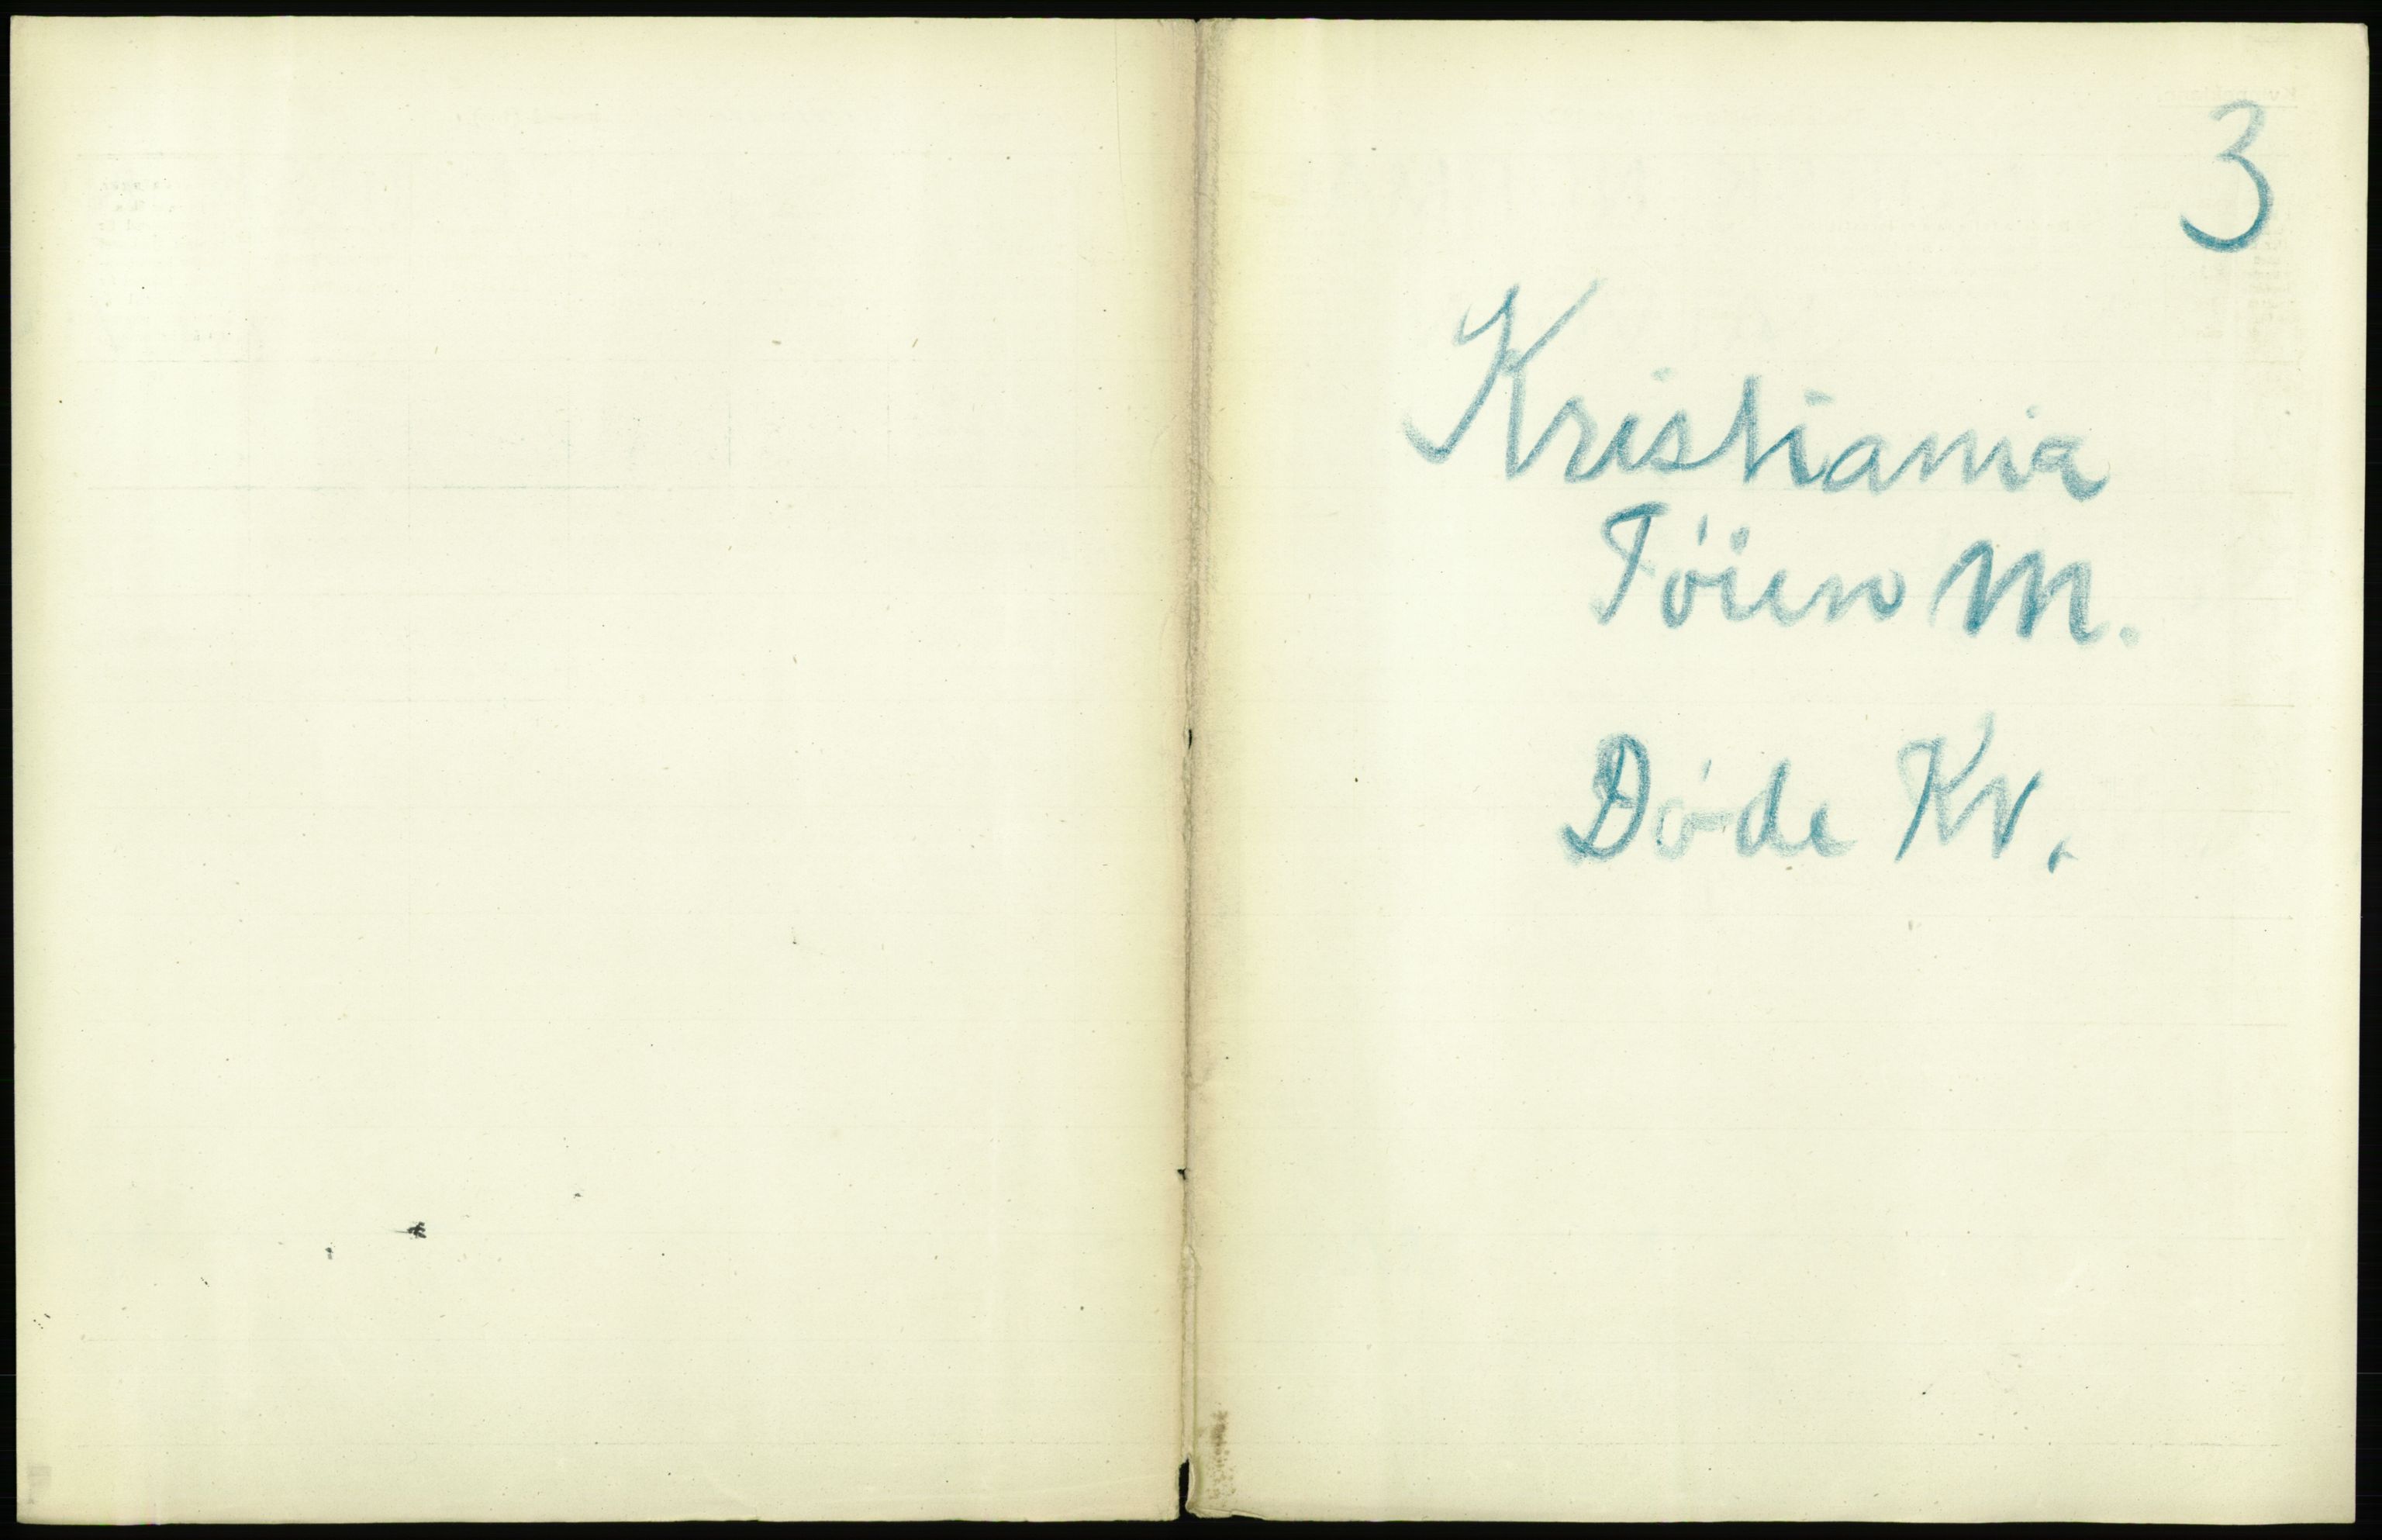 3
Kristiania
Tøien M.
Døde Kv.